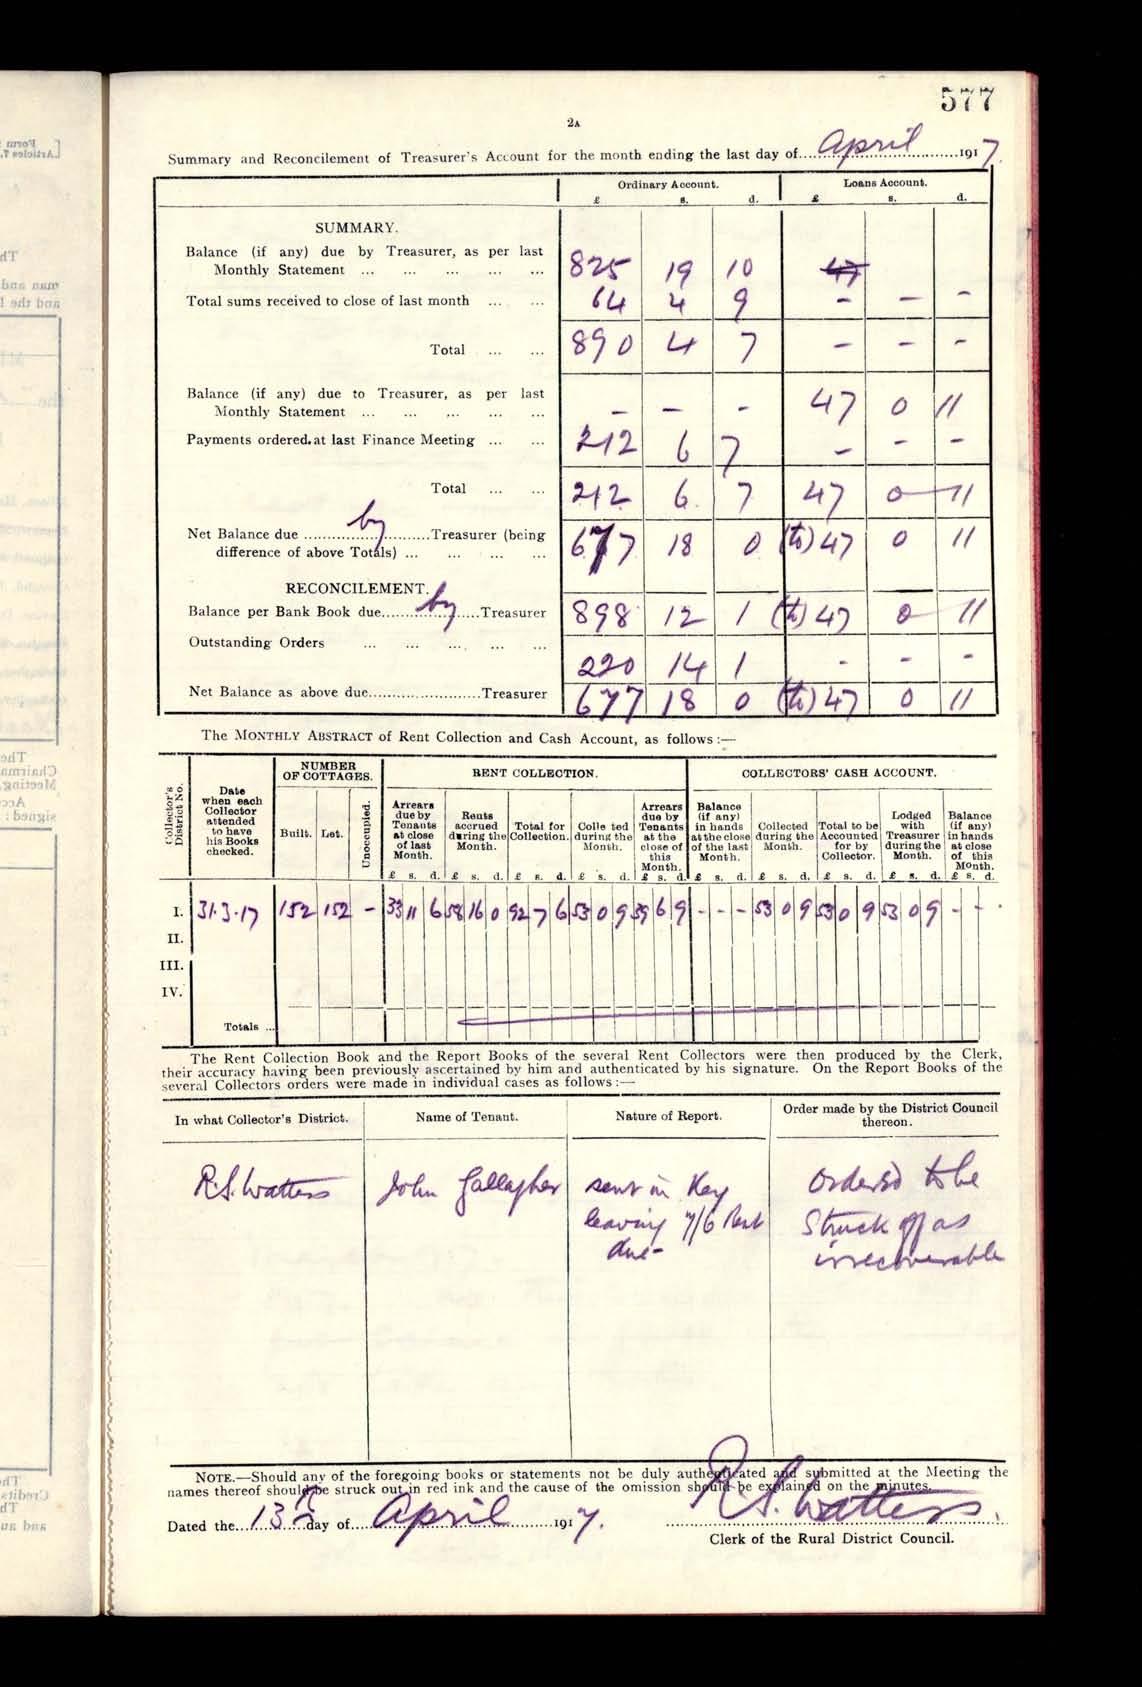 577
2A
Summary and Reconcilement of Treasurer's Account for the month ending the last day of April 1917.
Ordinary Account. Loans Account.
£ s. d. £ s. d.
SUMMARY.
Balance (if any) due by Treasurer, as per last
Monthly Statement ... ... ... ... ... 825 19 10 47
Total sums received to close of last month ... ... 64 4 9 - - -
Total ... ... 890 4 7 - - -
Balance (if any) due to Treasurer, as per last
Monthly Statement ... ... ... ... ... - - - 47 0 11
Payments ordered at last Finance Meeting ... ... 212 6 7 - - -
Total ... ... 212 6 7 47 0 11
Net Balance due by Treasurer (being
difference of above Totals) ... ... ... ... 677 18 0 (to) 47 0 11
RECONCILEMENT.
Balance per Bank Book due by Treasurer 898 12 1 (to) 47 0 11
Outstanding Orders ... ... ... ... ...
220 14 1 - - -
Net Balance as above due........................Treasurer 677 18 0 (to) 47 0 11
The MONTHLY ABSTRACT of Rent Collection and Cash Account, as follows :—
Collector's District No.
Date when each Collector attended to have his Books checked.
NUMBER OF COTTAGES.
Built. Let. Unoccupied.
RENT COLLECTION.
Arrears due by Tenants at close of last Month.
Rents accrued during the Month.
Total for Collection.
Colle ted during the Month.
Arrears due by Tenants at the close of this Month.
COLLECTORS' CASH ACCOUNT.
Balance (if any) in hands at the close of the last Month.
Collected during the Month.
Total to be Accounted for by Collector.
Lodged with Treasurer during the Month.
Balance (if any) in hands at close of this Month.
£ s. d. £ s. d. £ s. d. £ s. d. £ s. d. £ s. d. £ s. d. £ s. d. £ s. d. £ s. d.
I. 31.3.17 152 152 - 33 11 6 58 16 0 92 7 6 53 0 9 39 6 9 - - - 53 0 9 53 0 9 53 0 9 - - -
II.
III.
IV.
Totals ...
The Rent Collection Book and the Report Books of the several Rent Collectors were then produced by the Clerk,
their accuracy having been previously ascertained by him and authenticated by his signature. On the Report Books of the
several Collectors orders were made in individual cases as follows :—
In what Collector's District. Name of Tenant. Nature of Report. Order made by the District Council thereon.
R.S. Watters John Gallagher sent in Key Ordered to be
leaving 7/6 Rent Struck off as
due- irrecoverable
NOTE.—Should any of the foregoing books or statements not be duly authenticated and submitted at the Meeting the
names thereof should be struck out in red ink and the cause of the omission should be explained on the minutes.
R.S. Watters
Dated the 13th day of April 1917.
Clerk of the Rural District Council.